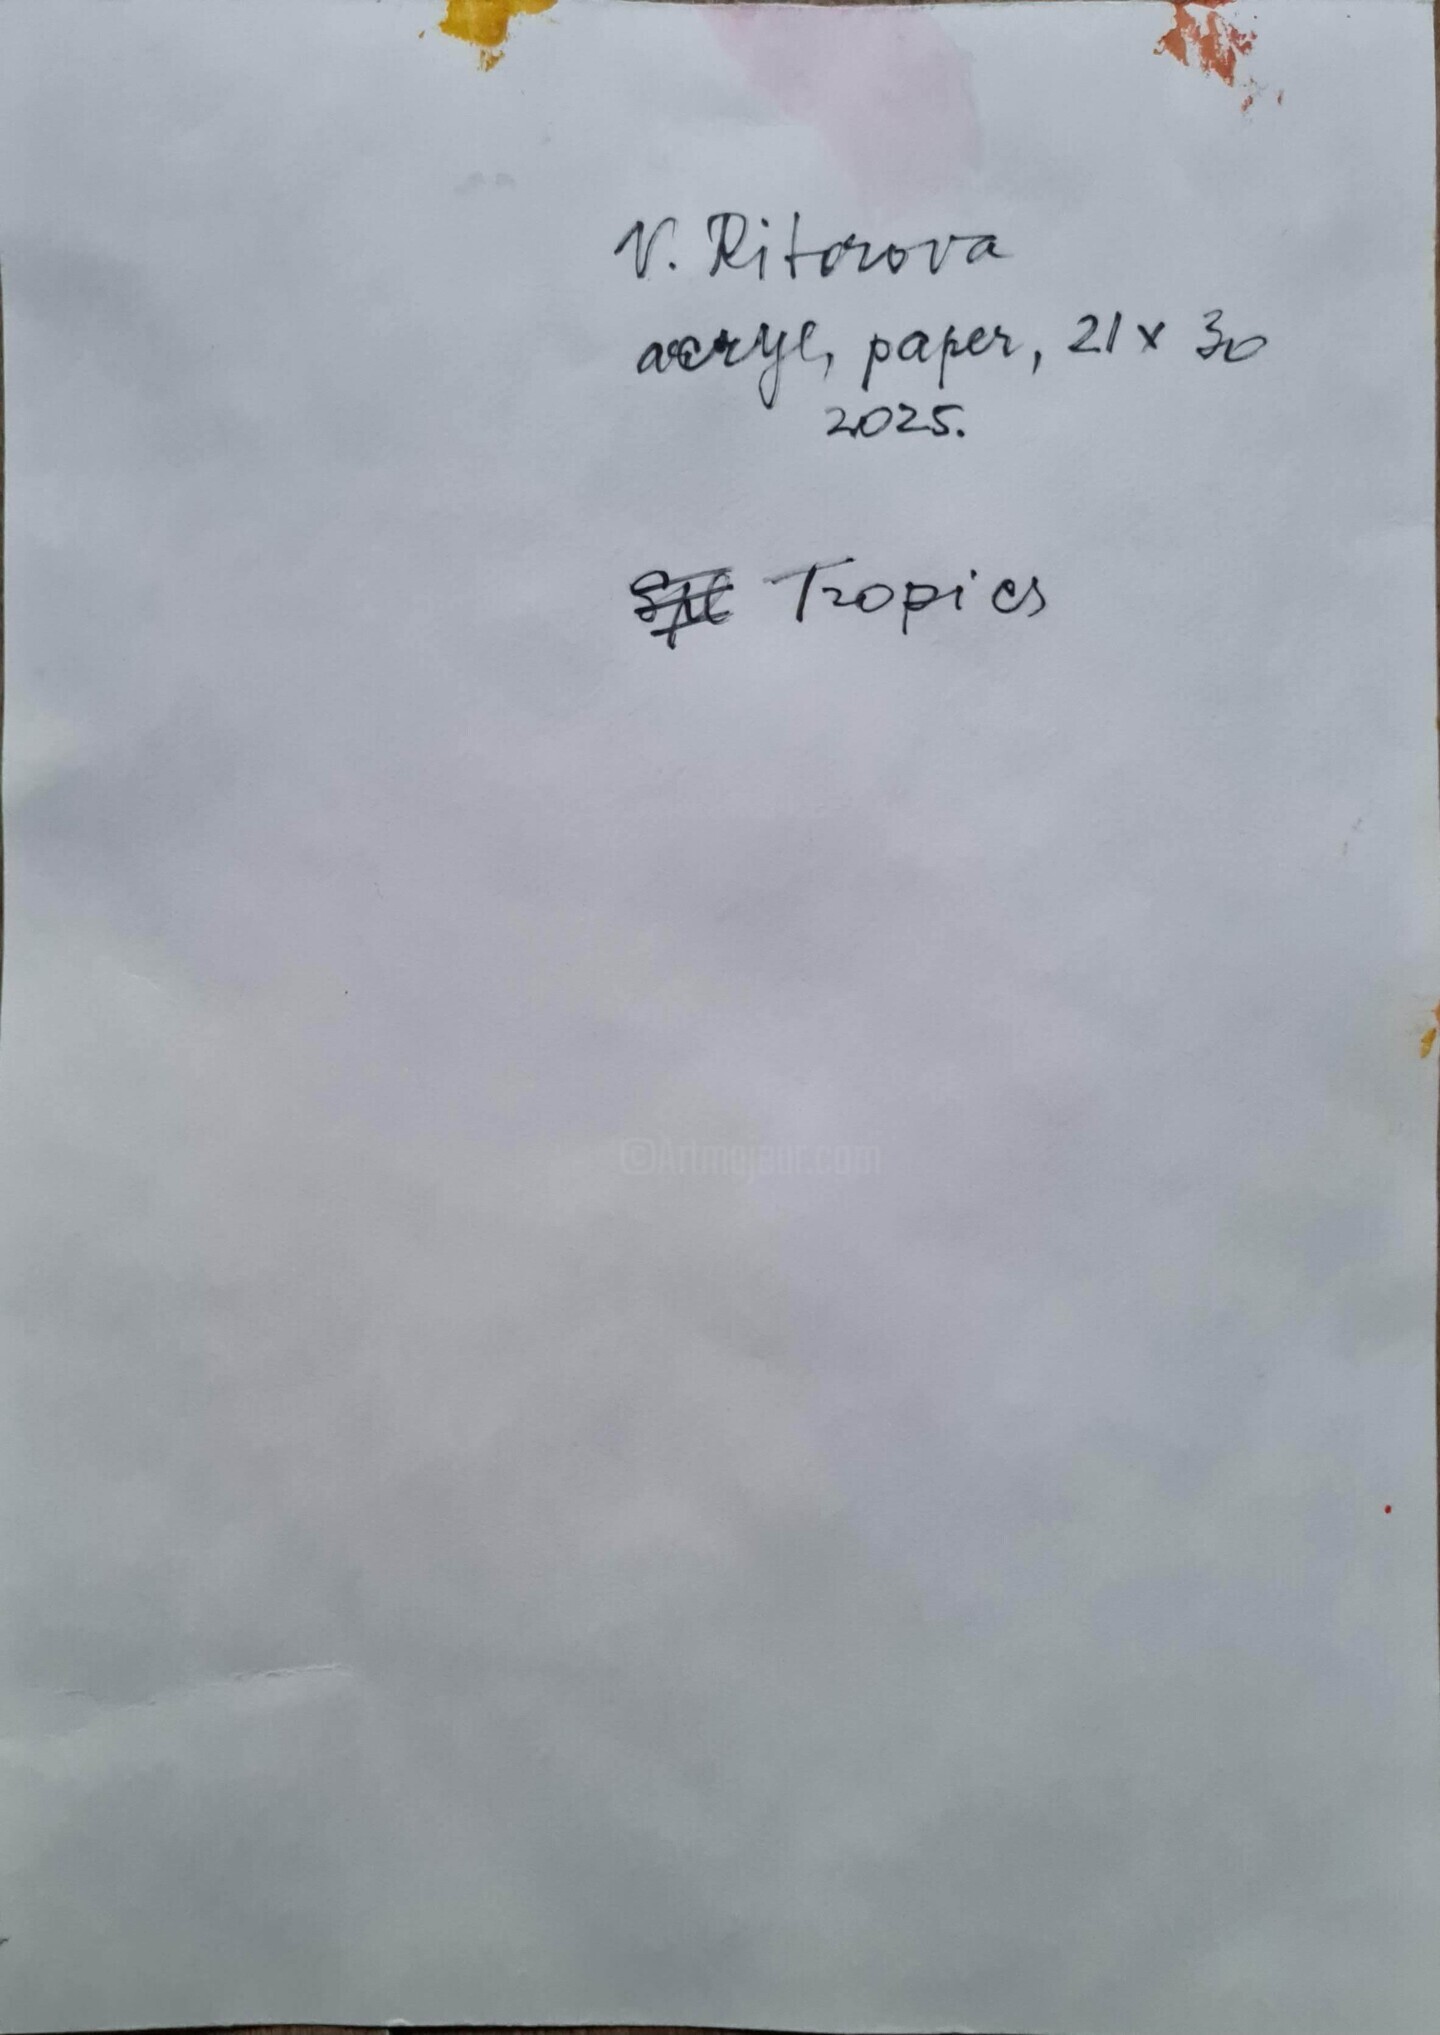 V. Ritorova
acryl, paper, 21 x 30
2025.
Tropics
©Artmajeur.com